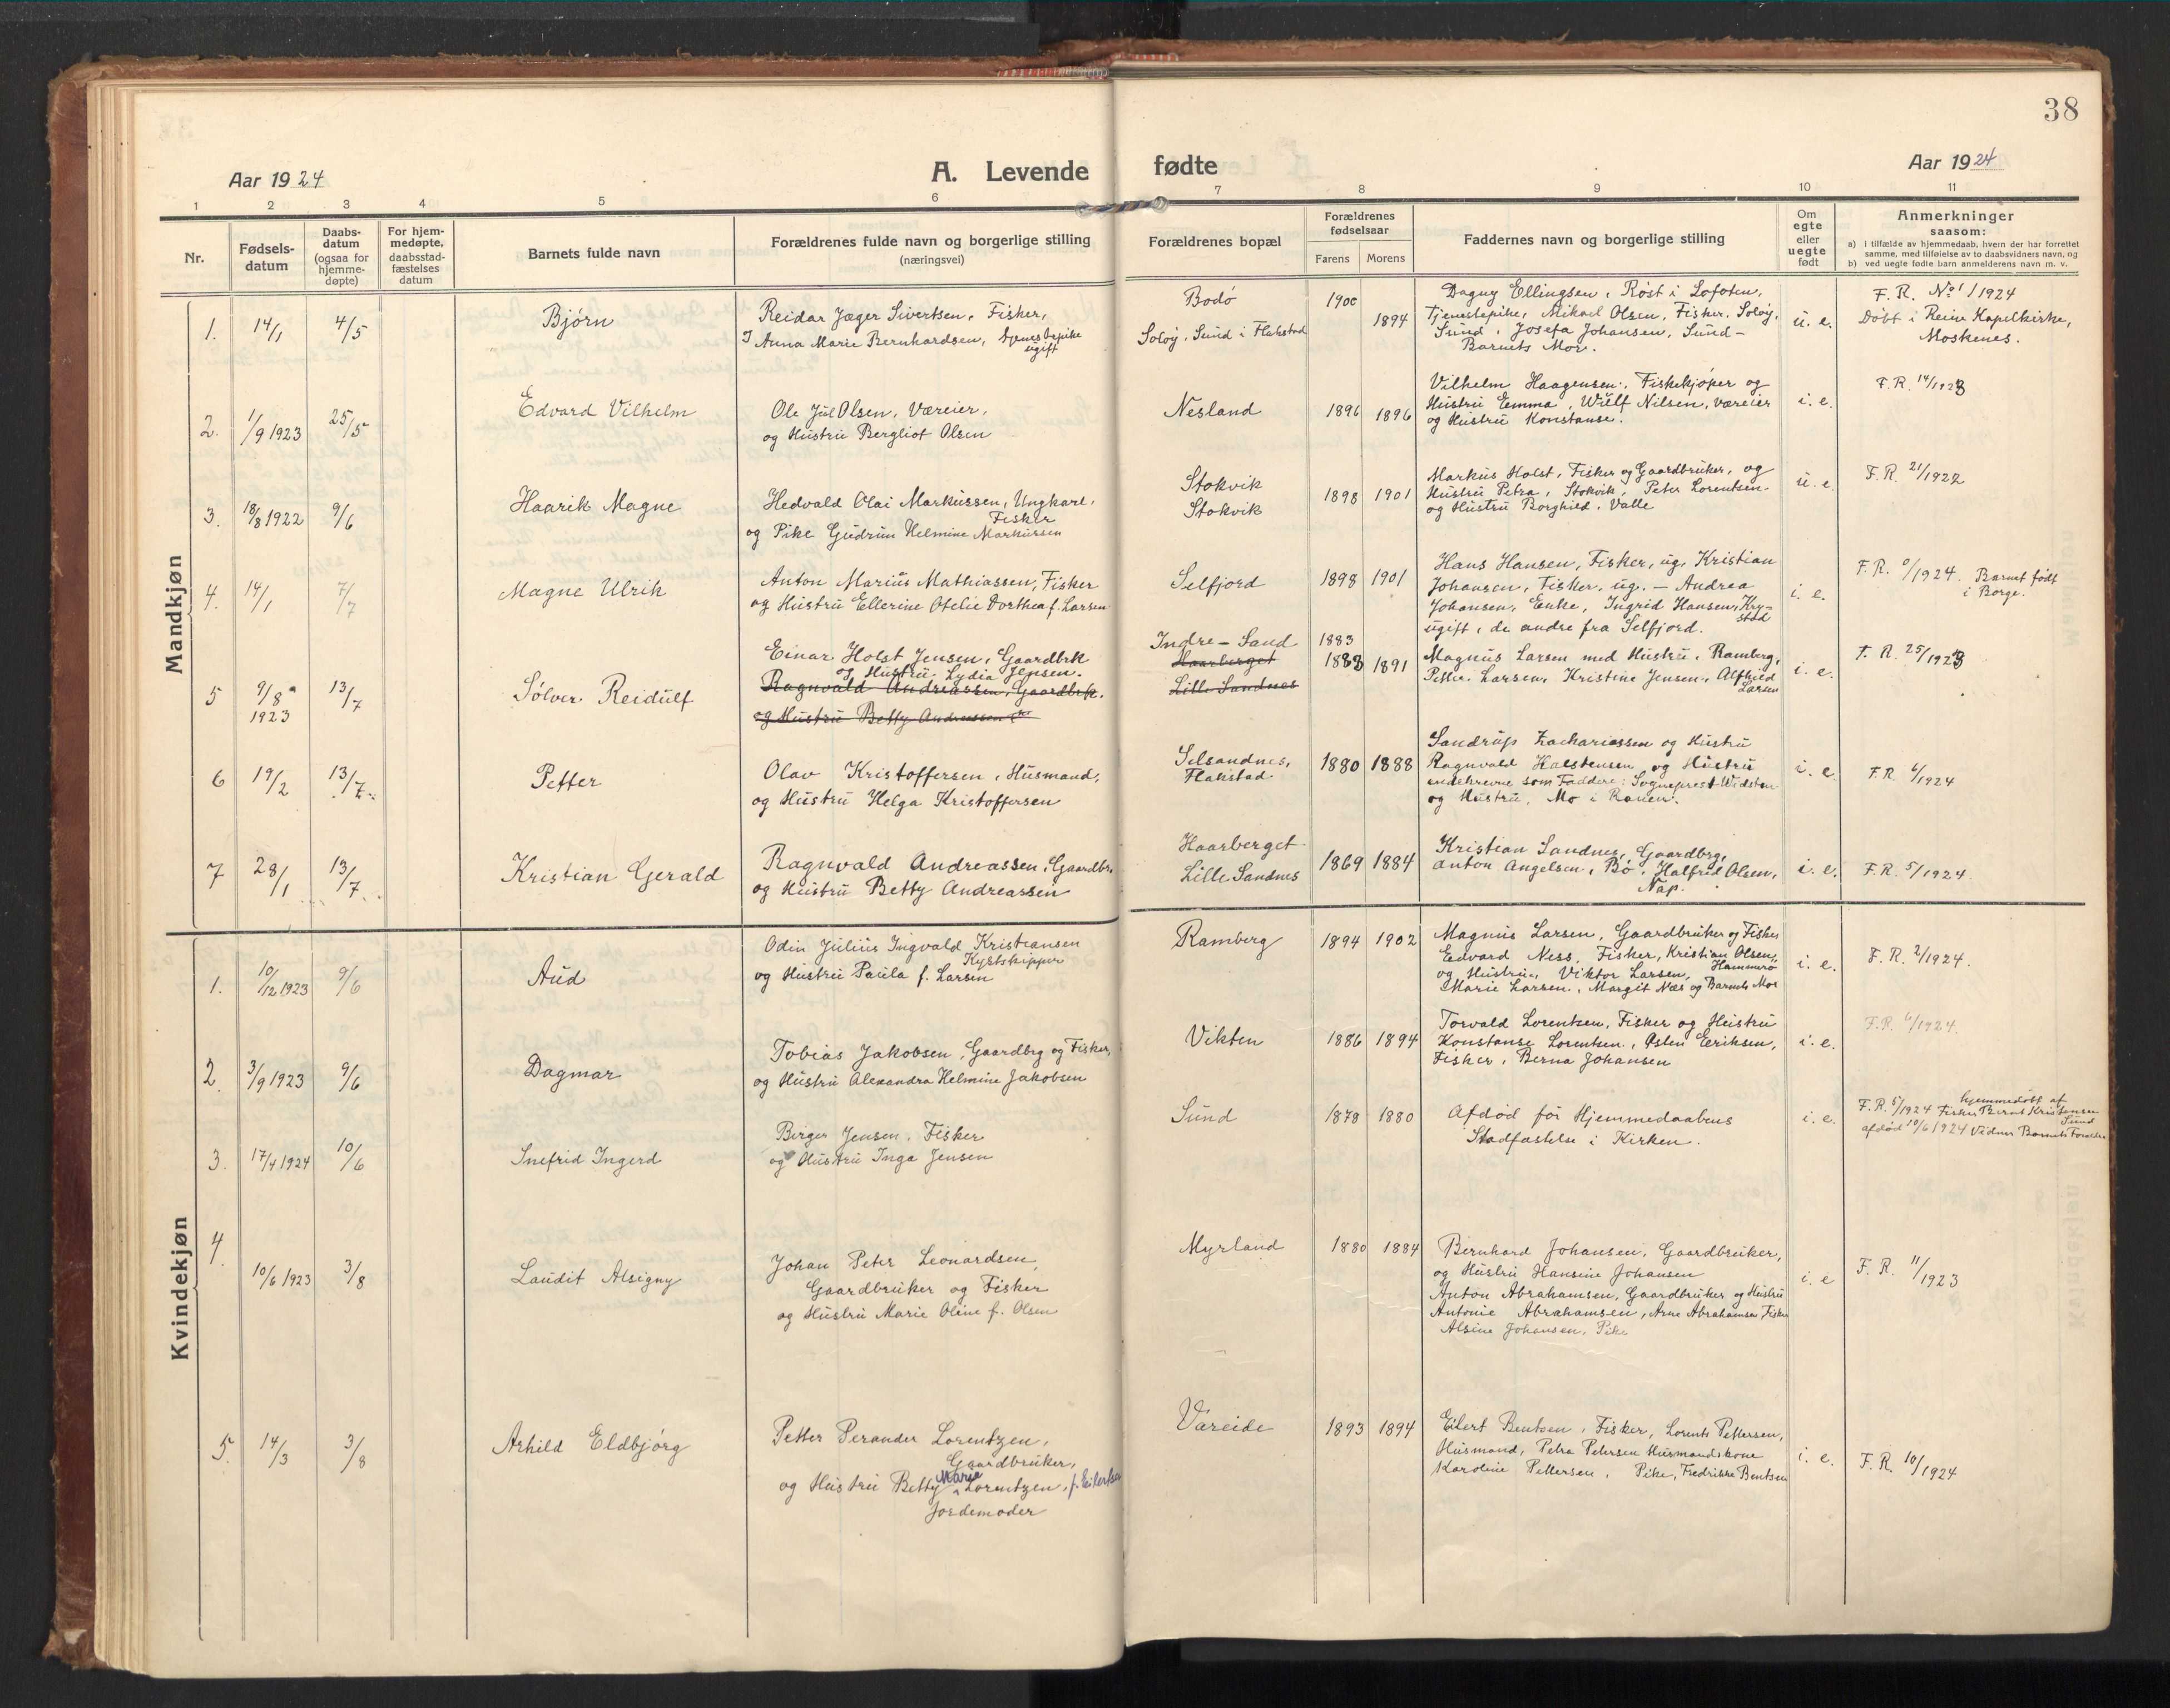 38
Aar 1924
A. Levende fødte
Aar 1924
1 2 3 4 5 6 7 8 9 10 11
Nr.
Fødsels-
datum
Daabs-
datum
(ogsaa for
hjemme-
døpte)
For hjem-
medøpte,
daabsstad-
fæstelses
datum
Barnets fulde navn
Forældrenes fulde navn og borgerlige stilling
(næringsvei)
Forældrenes bopæl
Forældrenes
fødselsaar
Farens Morens
Faddernes navn og borgerlige stilling
Om
egte
eller
uegte
født
Anmerkninger
saasom:
a) i tilfælde av hjemmedaab, hvem der har forrettet
samme, med tilføielse av to daabsvidners navn, og
b) ved uegte fødte barn anmelderens navn m. v.
Mandkjøn
1. 14/1 4/5 Bjórn
Reidar Jæger Sivertsen, Fisker,
Anna Marie Bernhardsen, tjenestepike
ugift
Bodó
Solóy, Sund i Flakstad
1900 1894
Dagny Ellingsen, Róst i Lofoten,
Tjenestepike, Mikael Olsen, Fisker, Solóy,
Sund, Josefa Johansen, Sund -
Barnets Mor.
u. e.
F. R. No 1/1924
Dóbt i Reine Kapelkirke,
Moskenes.
2. 1/9 1923 25/5 Edvard Vilhelm
Ole Jul Olsen, Væreier,
og Hustru Bergliot Olsen
Nesland
1896 1896
Vilhelm Haagensen, Fiskekjóper og
Hustru Emma, Wulf Nilsen, væreier
og Hustru Konstanse.
i. e.
F. R. 14/1923
3. 18/8 1922 9/6 Haarik Magne
Hedvald Olai Markussen, Ungkarl,
Fisker
og Pike Gudrun Helmine Markussen
Stokvik
Stokvik
1898 1901
Markus Holst, Fisker og Gaardbruker, og
Hustru Petra, Stokvik, Peter Lorentsen
og Hustru Borghild, Valle
u. e.
F. R. 21/1922
4. 14/1 7/7 Magne Ulrik
Anton Marius Mathiassen, Fisker
og Hustru Ellerine Ofelie Dorthea f. Larsen
Selfjord
1898 1901
Hans Hansen, Fisker, ug, Kristian
Johansen, Fisker, ug. - Andrea
Johansen, Enke, Ingrid Hansen, Kry-
stad
ugift, de andre fra Selfjord.
i. e.
F. R. 9/1924. Barnet født
i Borge.
5 9/8 1923 13/7 Sólver Reidulf
Einar Holst Jensen, Gaardbrk
og Hustru Lydia Jensen.
Ragnvald Andreassen, Gaardbrk.
og Hustru Betty Andreassen
Indre - Sand
Haarberget
Lille Sandnes
1883
1883 1891
Magnus Larsen med Hustru, Ramberg,
Petter Larsen, Kristine Jensen, Alfhild
Larsen
i. e.
F. R. 25/1923
6 19/2 13/7 Petter
Olav Kristoffersen, Husmand,
og Hustru Helga Kristoffersen
Selsandnes,
Flakstad
1880 1888
Sandrup Zachariassen og Hustru
Ragnvald Halstensen og Hustru
indskrevne som Faddere: Sogneprest Widsten
og Hustru, Mo i Ranen.
i. e.
F. R. 6/1924
7 28/1 13/7 Kristian Gerald
Ragnvald Andreassen, Gaardbr.
og Hustru Betty Andreassen
Haarberget
Lille Sandnes
1869 1884
Kristian Sandnes, Gaardbrg,
Anton Angelsen, Bó, Halfrid Olsen,
Nap.
i. e.
F. R. 5/1924.
Kvindekjøn
1. 10/12 1923 9/6 Aud
Odin Julius Ingvald Kristiansen
Kystskipper
og Hustru Paula f. Larsen
Ramberg
1894 1902
Magnus Larsen, Gaardbruker og Fisker
Edvard Ness, Fisker, Kristian Olsen,
og Hustru, Viktor Larsen, Hammeró
Marie Larsen, Margit Næs og Barnets Mor
i. e.
F. R. 2/1924.
2. 3/9 1923 9/6 Dagmar
Tobias Jakobsen, Gaardbrg og Fisker,
og Hustru Alexandra Helmine Jakobsen
Vikten
1886 1894
Torvald Lorentsen, Fisker og Hustru
Konstanse Lorentsen, Oslen Eeriksen,
Fisker, Berna Johansen
i. e.
F. R. 6/1924.
3. 17/4 1924 10/6 Snefrid Ingerd
Birger Jensen, Fisker
og Hustru Inga Jensen
Sund
1878 1880
Afdød fór Hjemmedaabens
Stadfæstelse i Kirken.
i. e.
hjemmedóbt af
F. R. 5/1924 Fisker Bernt Kristensen
Sund
afdød 10/6 1924 Vidner Barnets Forældre
4. 10/6 1923 3/8 Laudit Alsigny
Johan Peter Leonardsen,
Gaardbruker og Fisker
og Hustru Marie Oline f. Olsen
Myrland
1880 1884
Bernhard Johansen, Gaardbruker,
og Hustru Hansine Johansen
Anton Abrahamsen, Gaardbruker og Hustru
Antonie Abrahamsen, Arne Abrahamsen Fisker
Alsine Johansen, Pike
i. e
F. R. 11/1923
5. 14/3 3/8 Arhild Eldbjórg
Petter Perander Lorentzen,
Gaardbruker,
og Hustru Betty Marie Lorentzen, f. Eilertsen
Jordemoder
Vareide
1893 1894
Eilert Bentsen, Fisker, Lorents Pettersen,
Husmand, Petra Petersen Husmandskone
Karoline Pettersen, Pike, Fredrikke Bentsen
i. e.
F. R. 10/1924